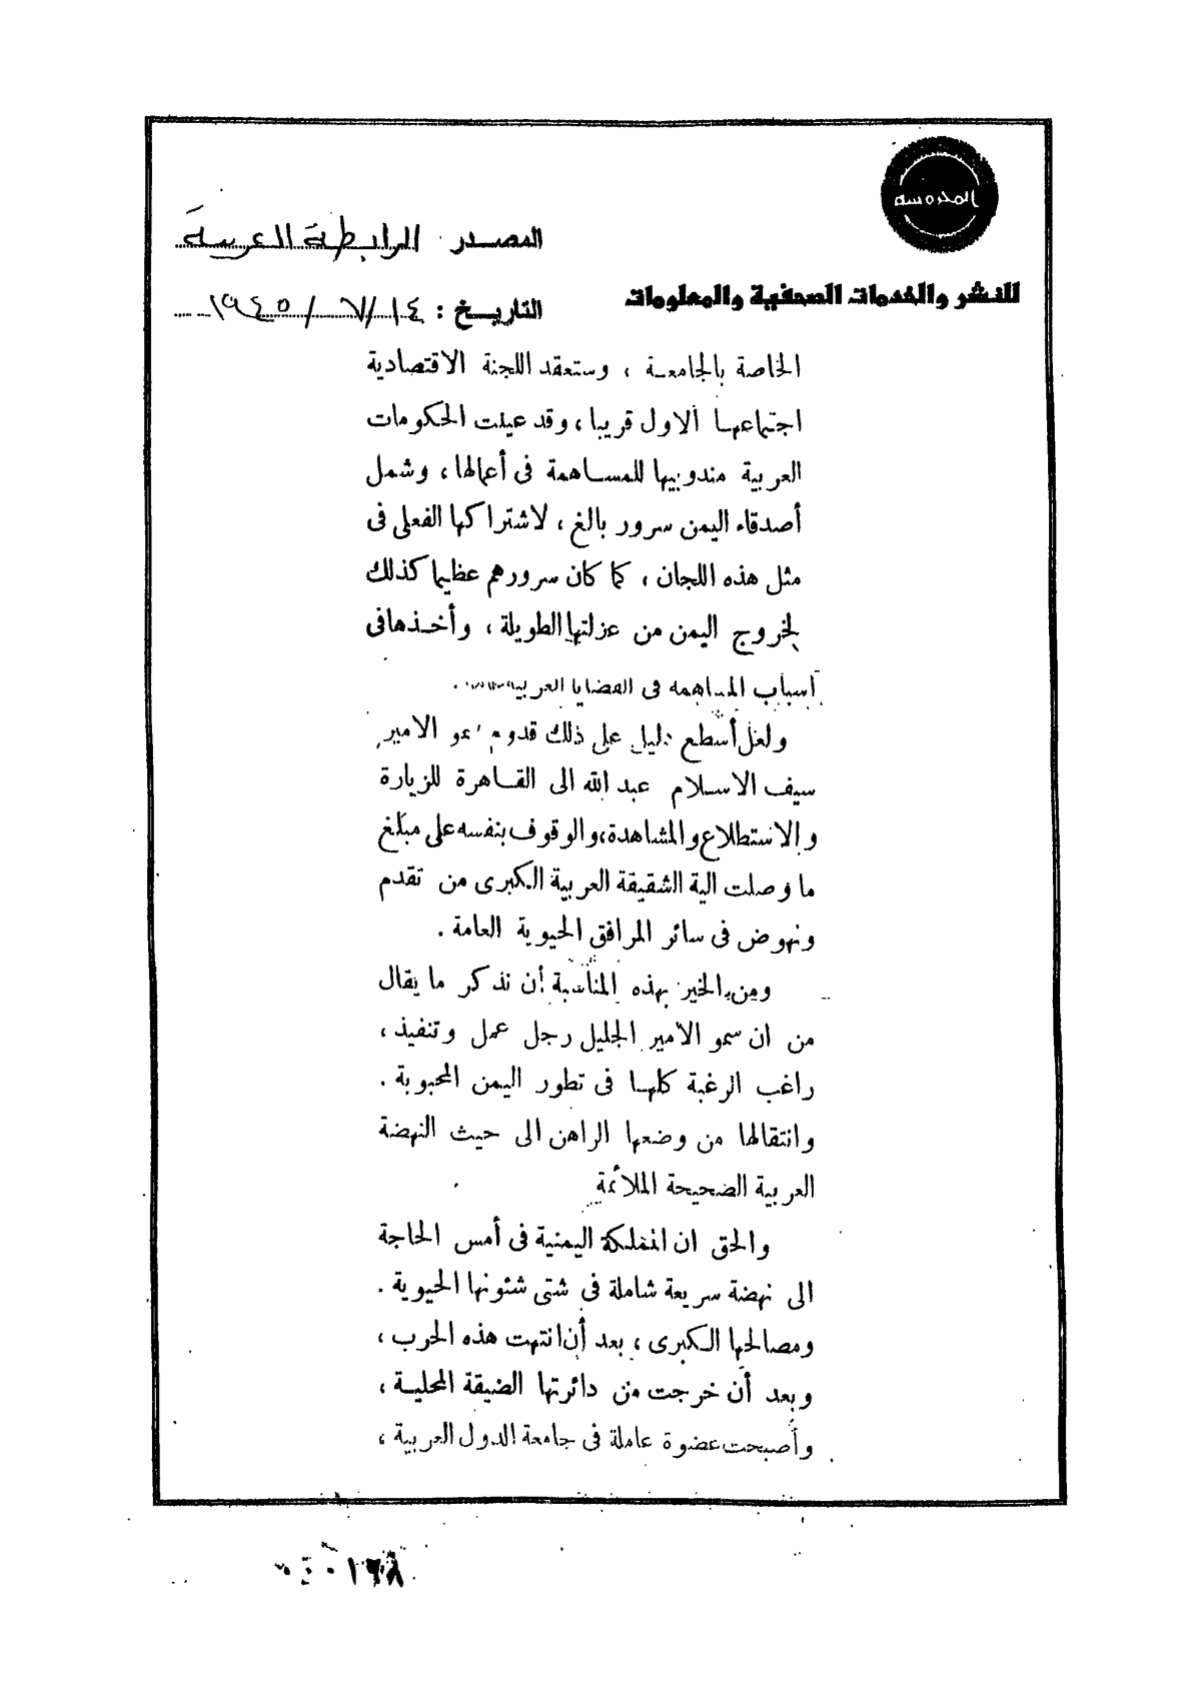 المحروسة
للنشر والخدمات الصحفية والمعلومات
المصدر الرابطة العربية
التاريخ : ١٤/٧/١٩٤٥
الخاصة بالجامعة ، وستعقد اللجنة الاقتصادية
اجتماعها الاول قريبا ، وقد عينت الحكومات
العربية مندوبيها للمساهمة فى أعمالها ، وشمل
أصدقاء اليمن سرور بالغ ، لاشتراكها الفعلى فى
مثل هذه اللجان ، كما كان سرورهم عظيما كذلك
لخروج اليمن من عزلتها الطويلة ، وأخذها فى
أسباب المساهمه فى القضايا العربية .
ولعل أسطع دليل على ذلك قدوم سمو الامير
سيف الاسلام عبد الله الى القاهرة للزيارة
والاستطلاع والمشاهدة، والوقوف بنفسه على مبلغ
ما وصلت الية الشقيقة العربية الكبرى من تقدم
ونهوض فى سائر المرافق الحيوية العامة .
ومن الخير بهذه المناسبة أن نذكر ما يقال
من ان سمو الامير الجليل رجل عمل وتنفيذ ،
راغب الرغبة كلها فى تطور اليمن المحبوبة .
وانتقالها من وضعها الراهن الى حيث النهضة
العربية الصحيحة الملائمة
والحق ان المملكة اليمنية فى أمس الحاجة
الى نهضة سريعة شاملة فى شتى شئونها الحيوية .
ومصالحها الكبرى ، بعد أن انتهت هذه الحرب ،
وبعد أن خرجت من دائرتها الضيقة المحلية ،
وأصبحت عضوة عاملة فى جامعة الدول العربية ،